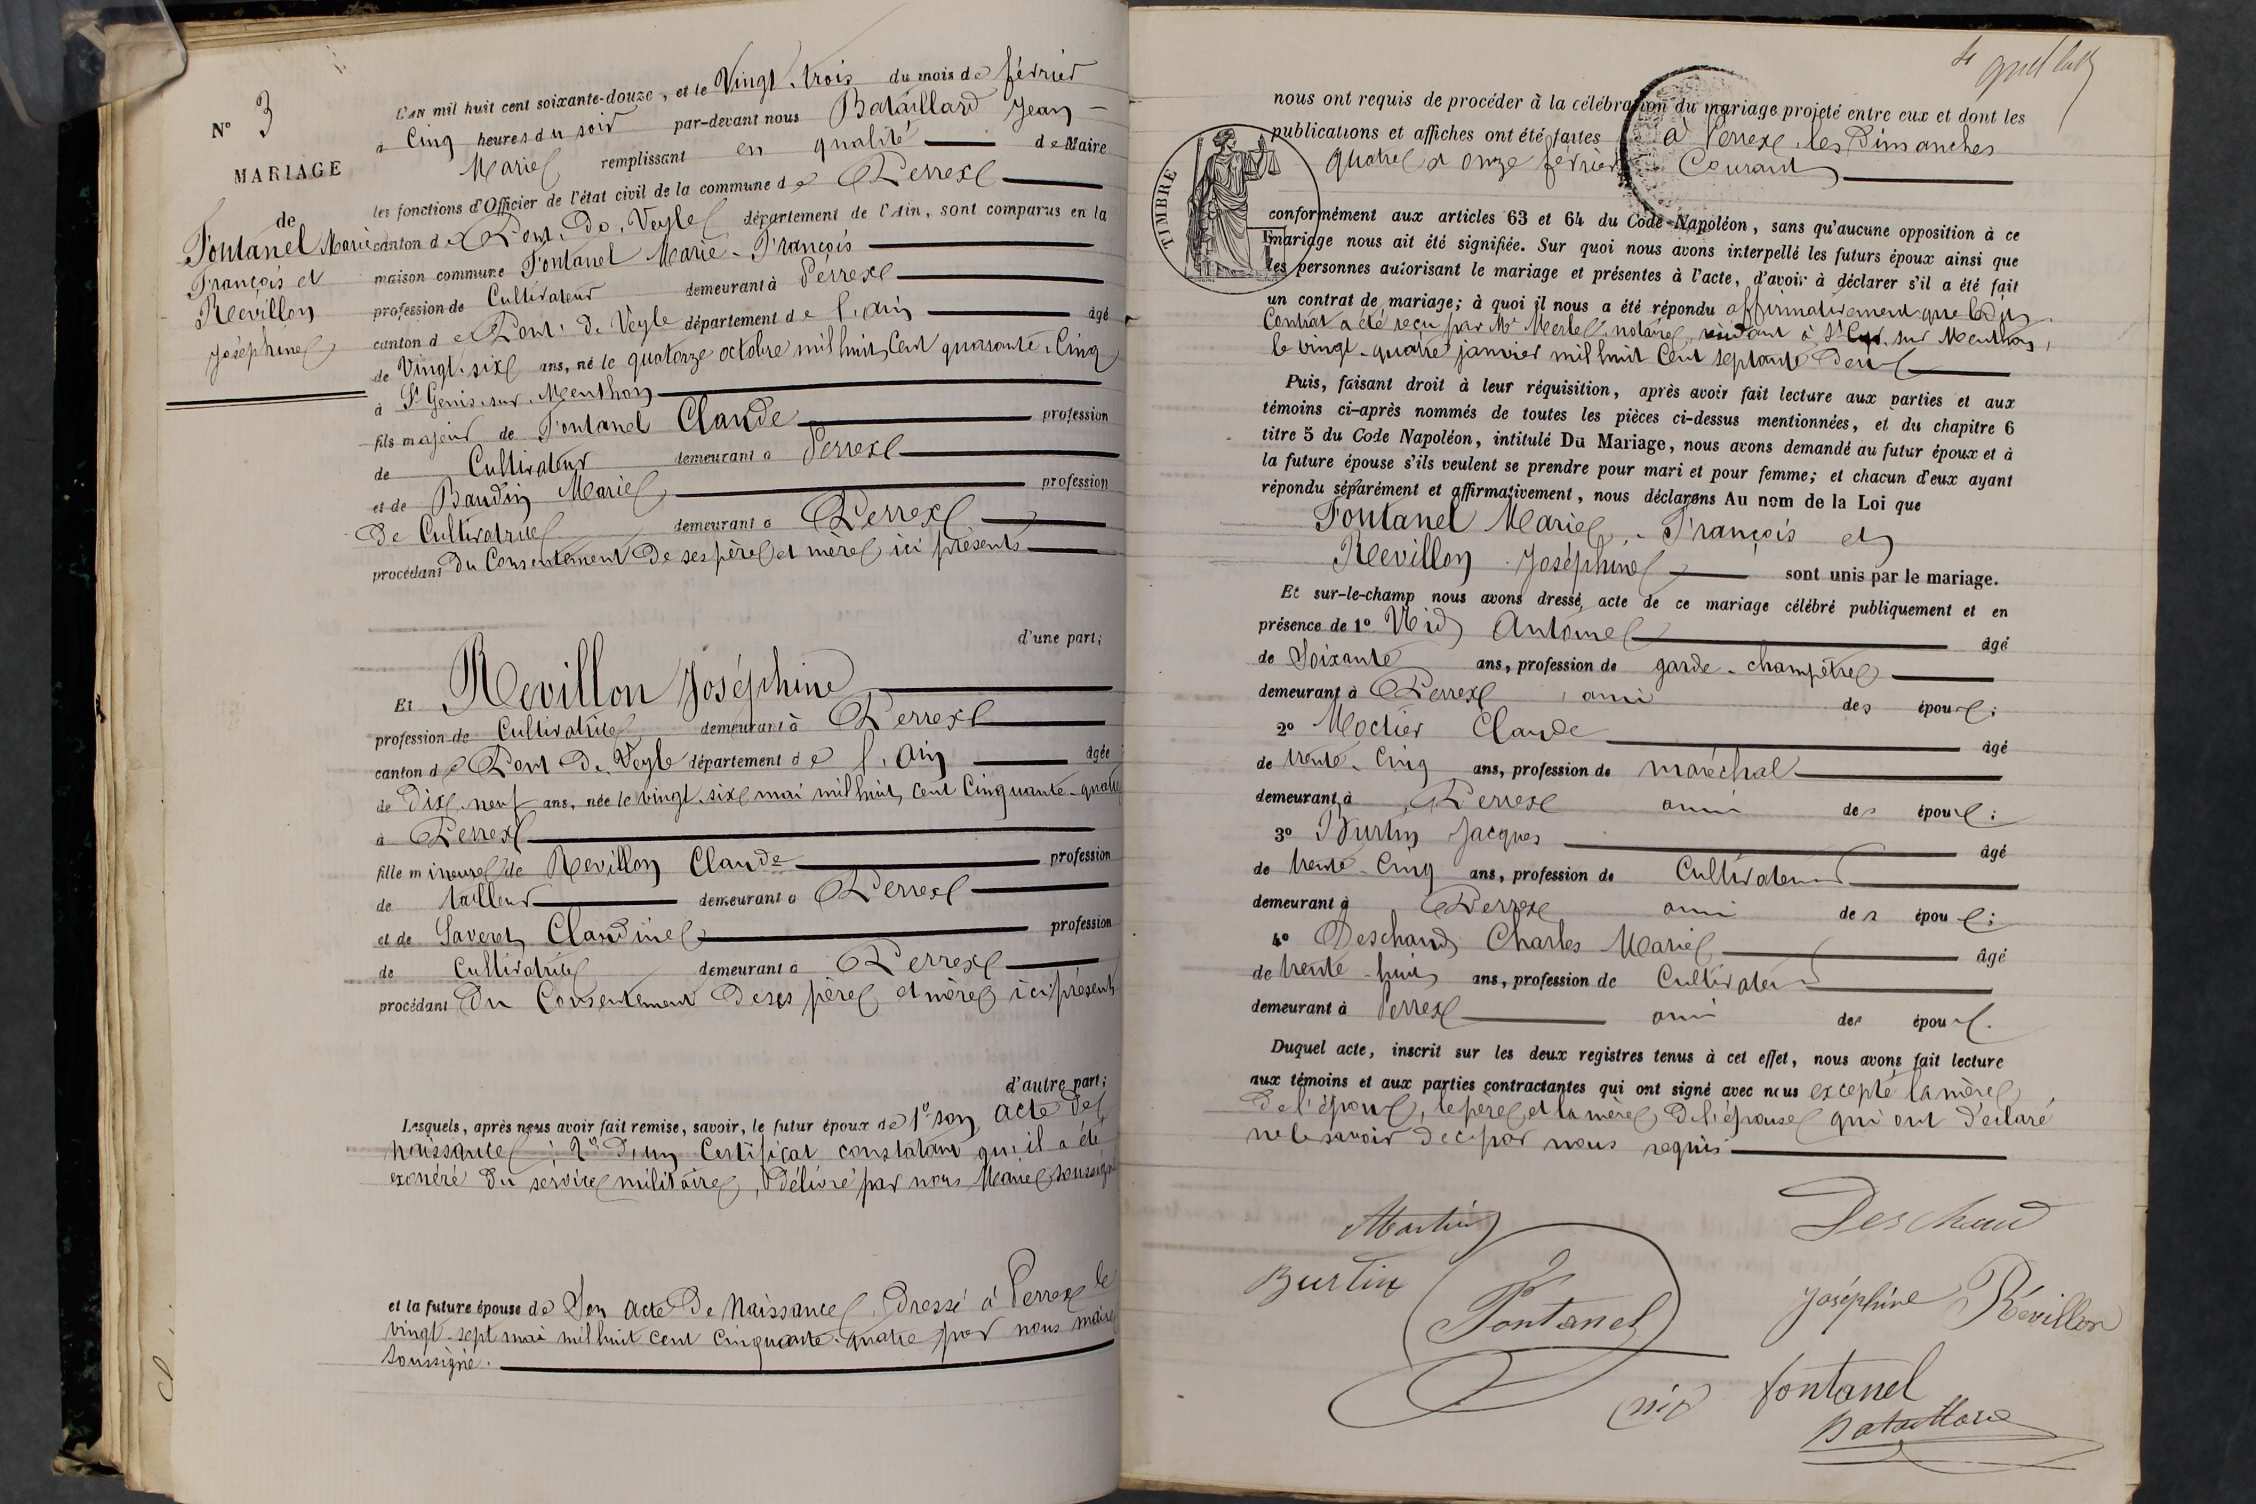 N° 3
MARIAGE
de
Fontanel Marie
François et
Revillon
Joséphine
L'AN mil huit cent soixante-douze, et le Vingt-trois du mois de février
à Cinq heures du soir par-devant nous Bataillard Jean-
Marie remplissant en qualité de Maire
les fonctions d'Officier de l'état civil de la commune de Perrex
canton de Pont-de-Veyle département de l'Ain, sont comparus en la
maison commune Fontanel Marie-François
profession de Cultivateur demeurant à Perrex
canton de Pont-de-Veyle département de l'ain âgé
de Vingt-six ans, né le quatorze octobre mil huit cent quarante-Cinq
à St Genis-sur-Menthon
fils majeur de Fontanel Claude profession
de Cultivateur demeurant à Perrex
et de Baudin Marie profession
de Cultivatrice demeurant à Perrex
procédant du Consentement de ses père et mère ici présents
d'une part;
Et Revillon Joséphine
profession de Cultivatrice demeurant à Perrex
canton de Pont-de-Veyle département de l'ain âgée
de dix-neuf ans, née le vingt-six mai mil huit cent Cinquante-quatre
à Perrex
fille mineure de Revillon Claude profession
de tailleur demeurant à Perrex
et de Saveret Claudine profession
de Cultivatrice demeurant à Perrex
procédant du Consentement de ses père et mère ici présents
d'autre part;
Lesquels, après nous avoir fait remise, savoir, le futur époux de 1° son acte de
naissance; 2° d'un Certificat constatant qu'il a été
exonéré du service militaire, délivré par nous Maire soussigné
et la future épouse de Son acte de Naissance, dressé à Perrex le
vingt-sept mai mil huit cent cinquante-quatre par nous maire
soussigné.
nous ont requis de procéder à la célébration du mariage projeté entre eux et dont les
publications et affiches ont été faites à Perrex les Dimanches
quatre et onze février Courant
TIMBRE
conformément aux articles 63 et 64 du Code Napoléon, sans qu'aucune opposition à ce
mariage nous ait été signifiée. Sur quoi nous avons interpellé les futurs époux ainsi que
les personnes autorisant le mariage et présentes à l'acte, d'avoir à déclarer s'il a été fait
un contrat de mariage; à quoi il nous a été répondu affirmativement que ledit
Contrat a été reçu par Me Merle, notaire, résidant à St Cyr-sur-Menthon,
le vingt-quatre janvier mil huit Cent septante deux
Puis, faisant droit à leur réquisition, après avoir fait lecture aux parties et aux
témoins ci-après nommés de toutes les pièces ci-dessus mentionnées, et du chapitre 6
titre 5 du Code Napoléon, intitulé Du Mariage, nous avons demandé au futur époux et à
la future épouse s'ils veulent se prendre pour mari et pour femme; et chacun d'eux ayant
répondu séparément et affirmativement, nous déclarons Au nom de la Loi que
Fontanel Marie-François et
Revillon Joséphine sont unis par le mariage.
Et sur-le-champ nous avons dressé acte de ce mariage célébré publiquement et en
présence de 1° Nid Antoine âgé
de Soixante ans, profession de garde-champêtre
demeurant à Perrex, ami des époux;
2° Moctier Claude âgé
de trente-Cinq ans, profession de maréchal
demeurant à Perrex ami des époux;
3° Burtin Jacques âgé
de trente-Cinq ans, profession de Cultivateur
demeurant à Perrex ami des époux;
4° Deschand Charles Marie âgé
de trente-huit ans, profession de Cultivateur
demeurant à Perrex ami des époux.
Duquel acte, inscrit sur les deux registres tenus à cet effet, nous avons fait lecture
aux témoins et aux parties contractantes qui ont signé avec nous excepté la mère
de l'époux, le père et la mère de l'épouse qui ont déclaré
ne le savoir de ce par nous requis
Deschaud
Burtin
Fontanel
Joséphine Révillon
nid
fontanel
Bataillard